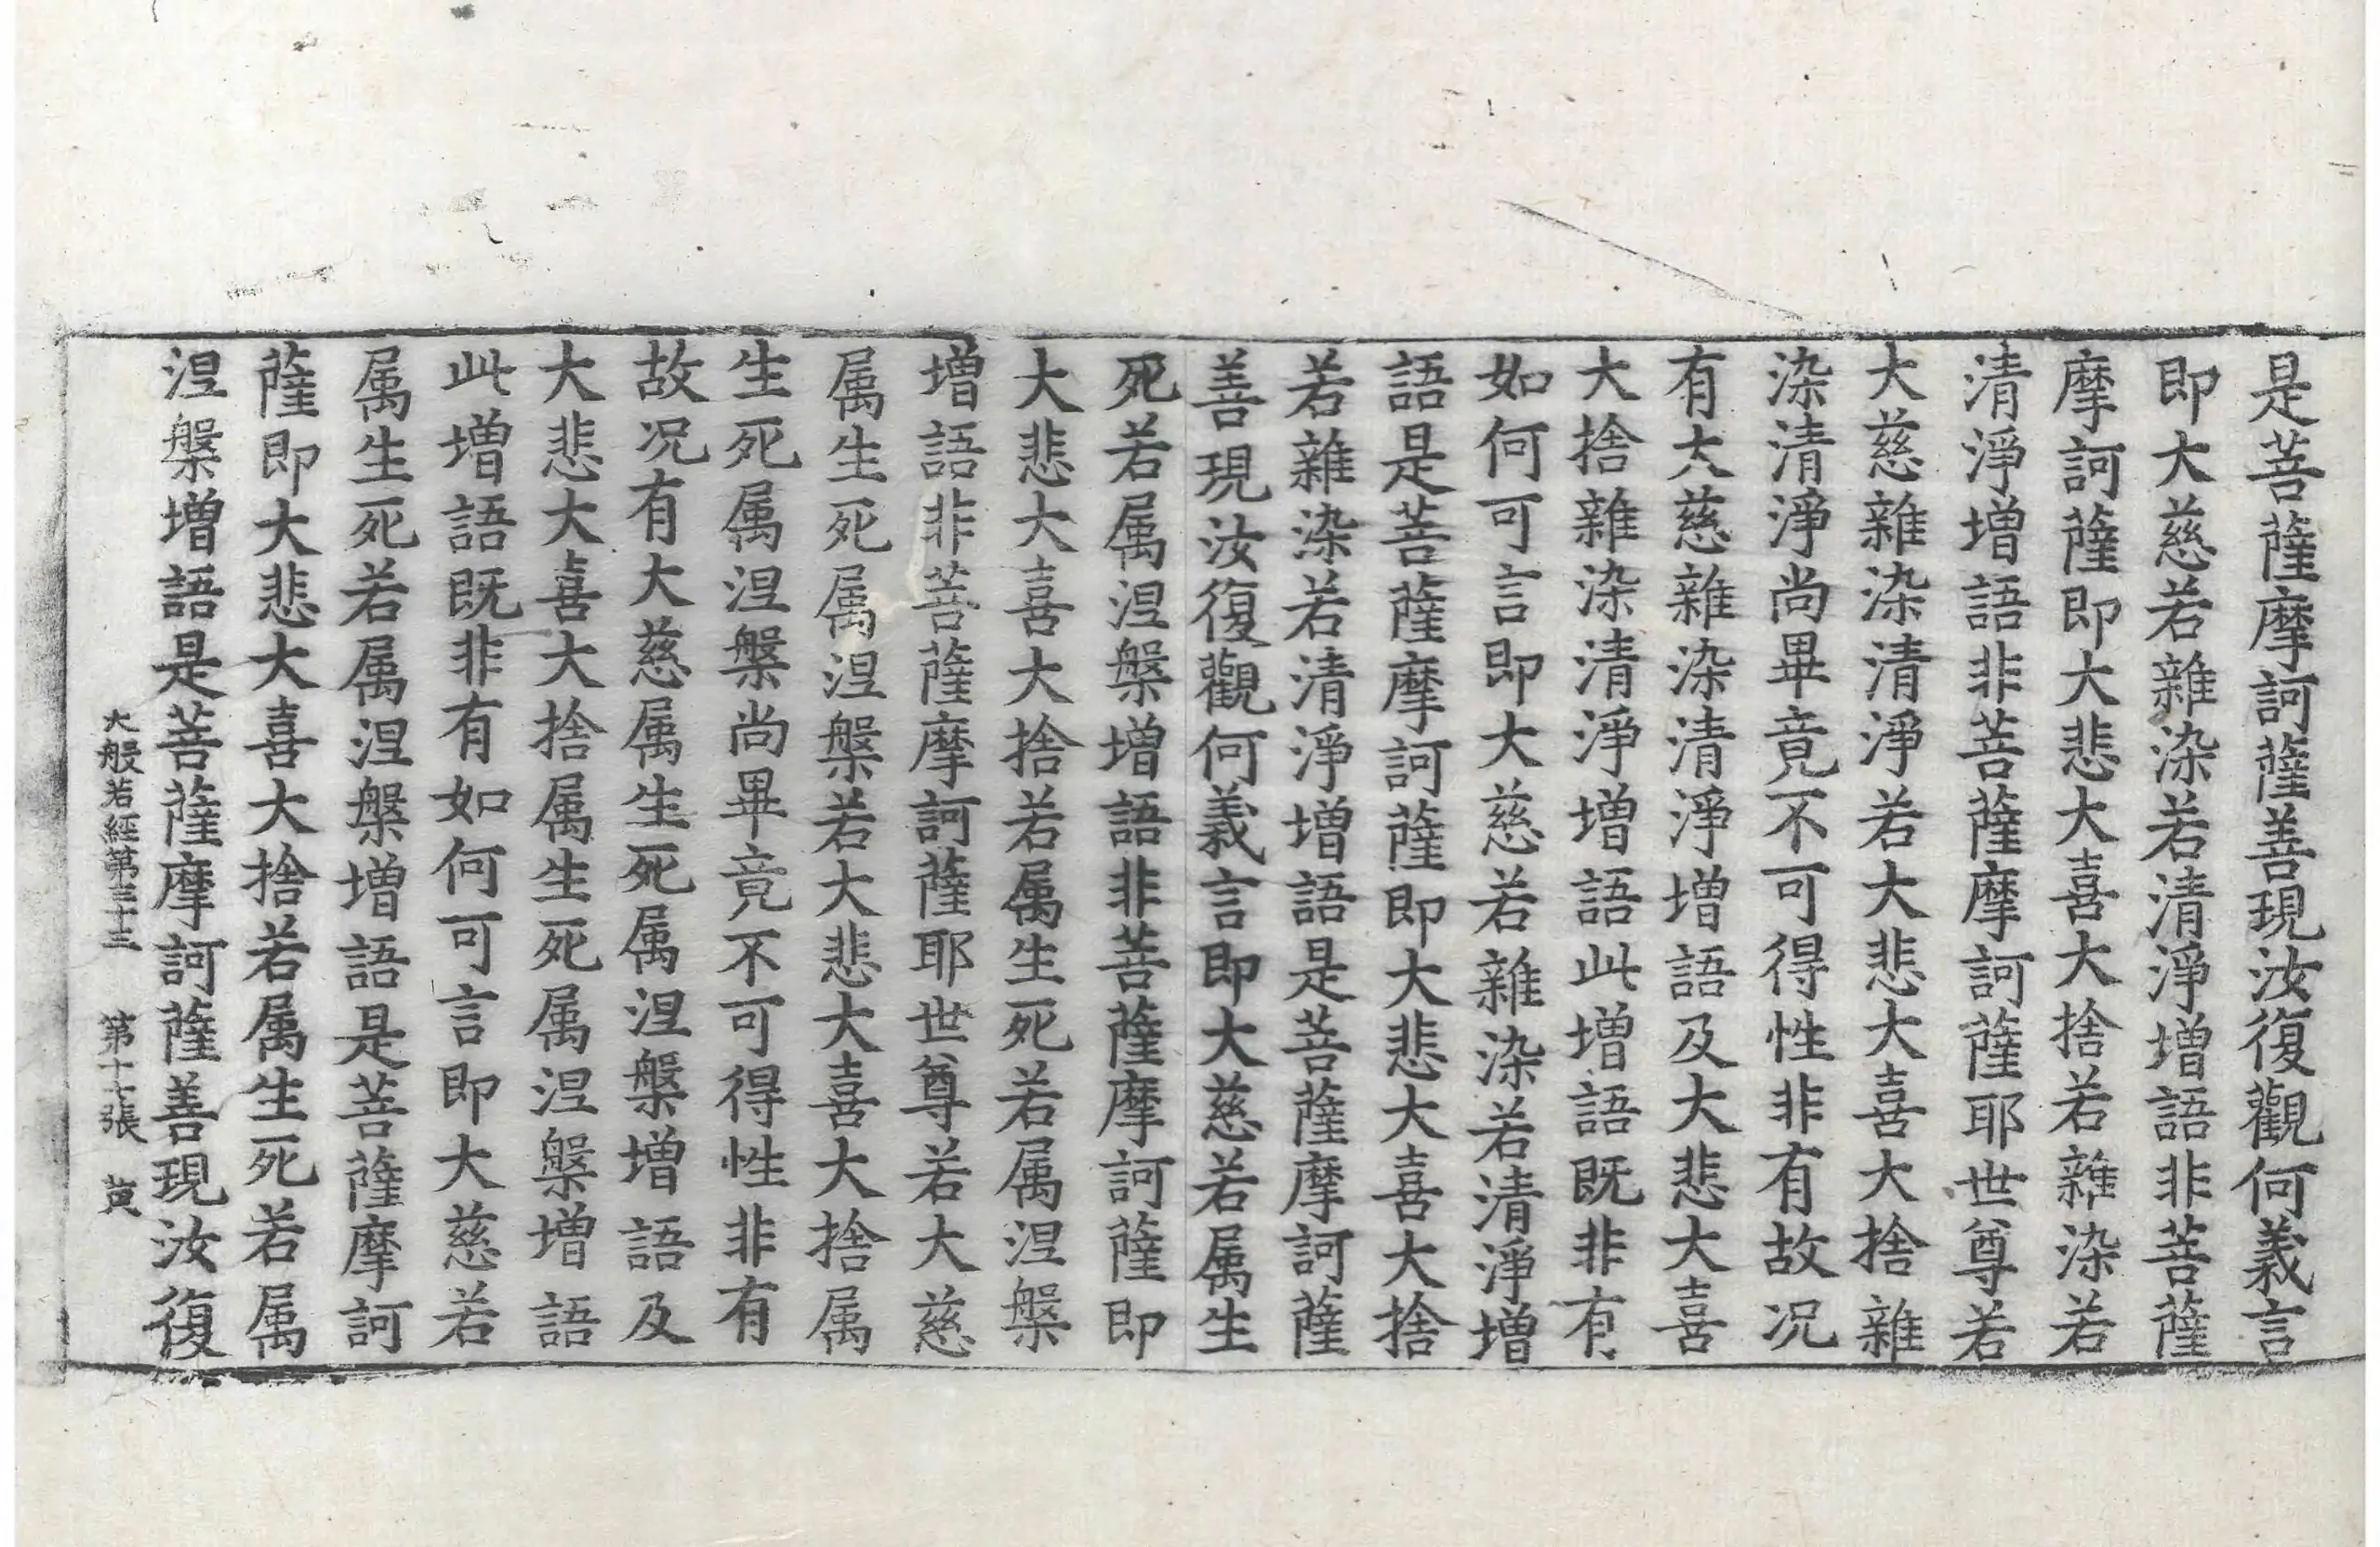 是菩薩摩訶薩善現汝復觀何義言
即大慈若雜染若清淨增語非菩薩
摩訶薩即大悲大喜大捨若雜染若
清淨增語非菩薩摩訶薩耶世尊若
大慈雜染清淨若大悲大喜大捨雜
染清淨尚畢竟不可得性非有故况
有大慈雜染清淨增語及大悲大喜
大捨雜染清淨增語此增語既非有
如何可言即大慈若雜染若清淨增
語是菩薩摩訶薩即大悲大喜大捨
若雜染若清淨增語是菩薩摩訶薩
善現汝復觀何義言即大慈若属生
死若属涅槃增語非菩薩摩訶薩即
大悲大喜大捨若属生死若属涅槃
增語非菩薩摩訶薩耶世尊若大慈
属生死属涅槃若大悲大喜大捨属
生死属涅槃尚畢竟不可得性非有
故况有大慈属生死属涅槃增語及
大悲大喜大捨属生死属涅槃增語
此增語既非有如何可言即大慈若
属生死若属涅槃增語是菩薩摩訶
薩即大悲大喜大捨若属生死若属
涅槃增語是菩薩摩訶薩善現汝復
大般若經第三十三 第十七張